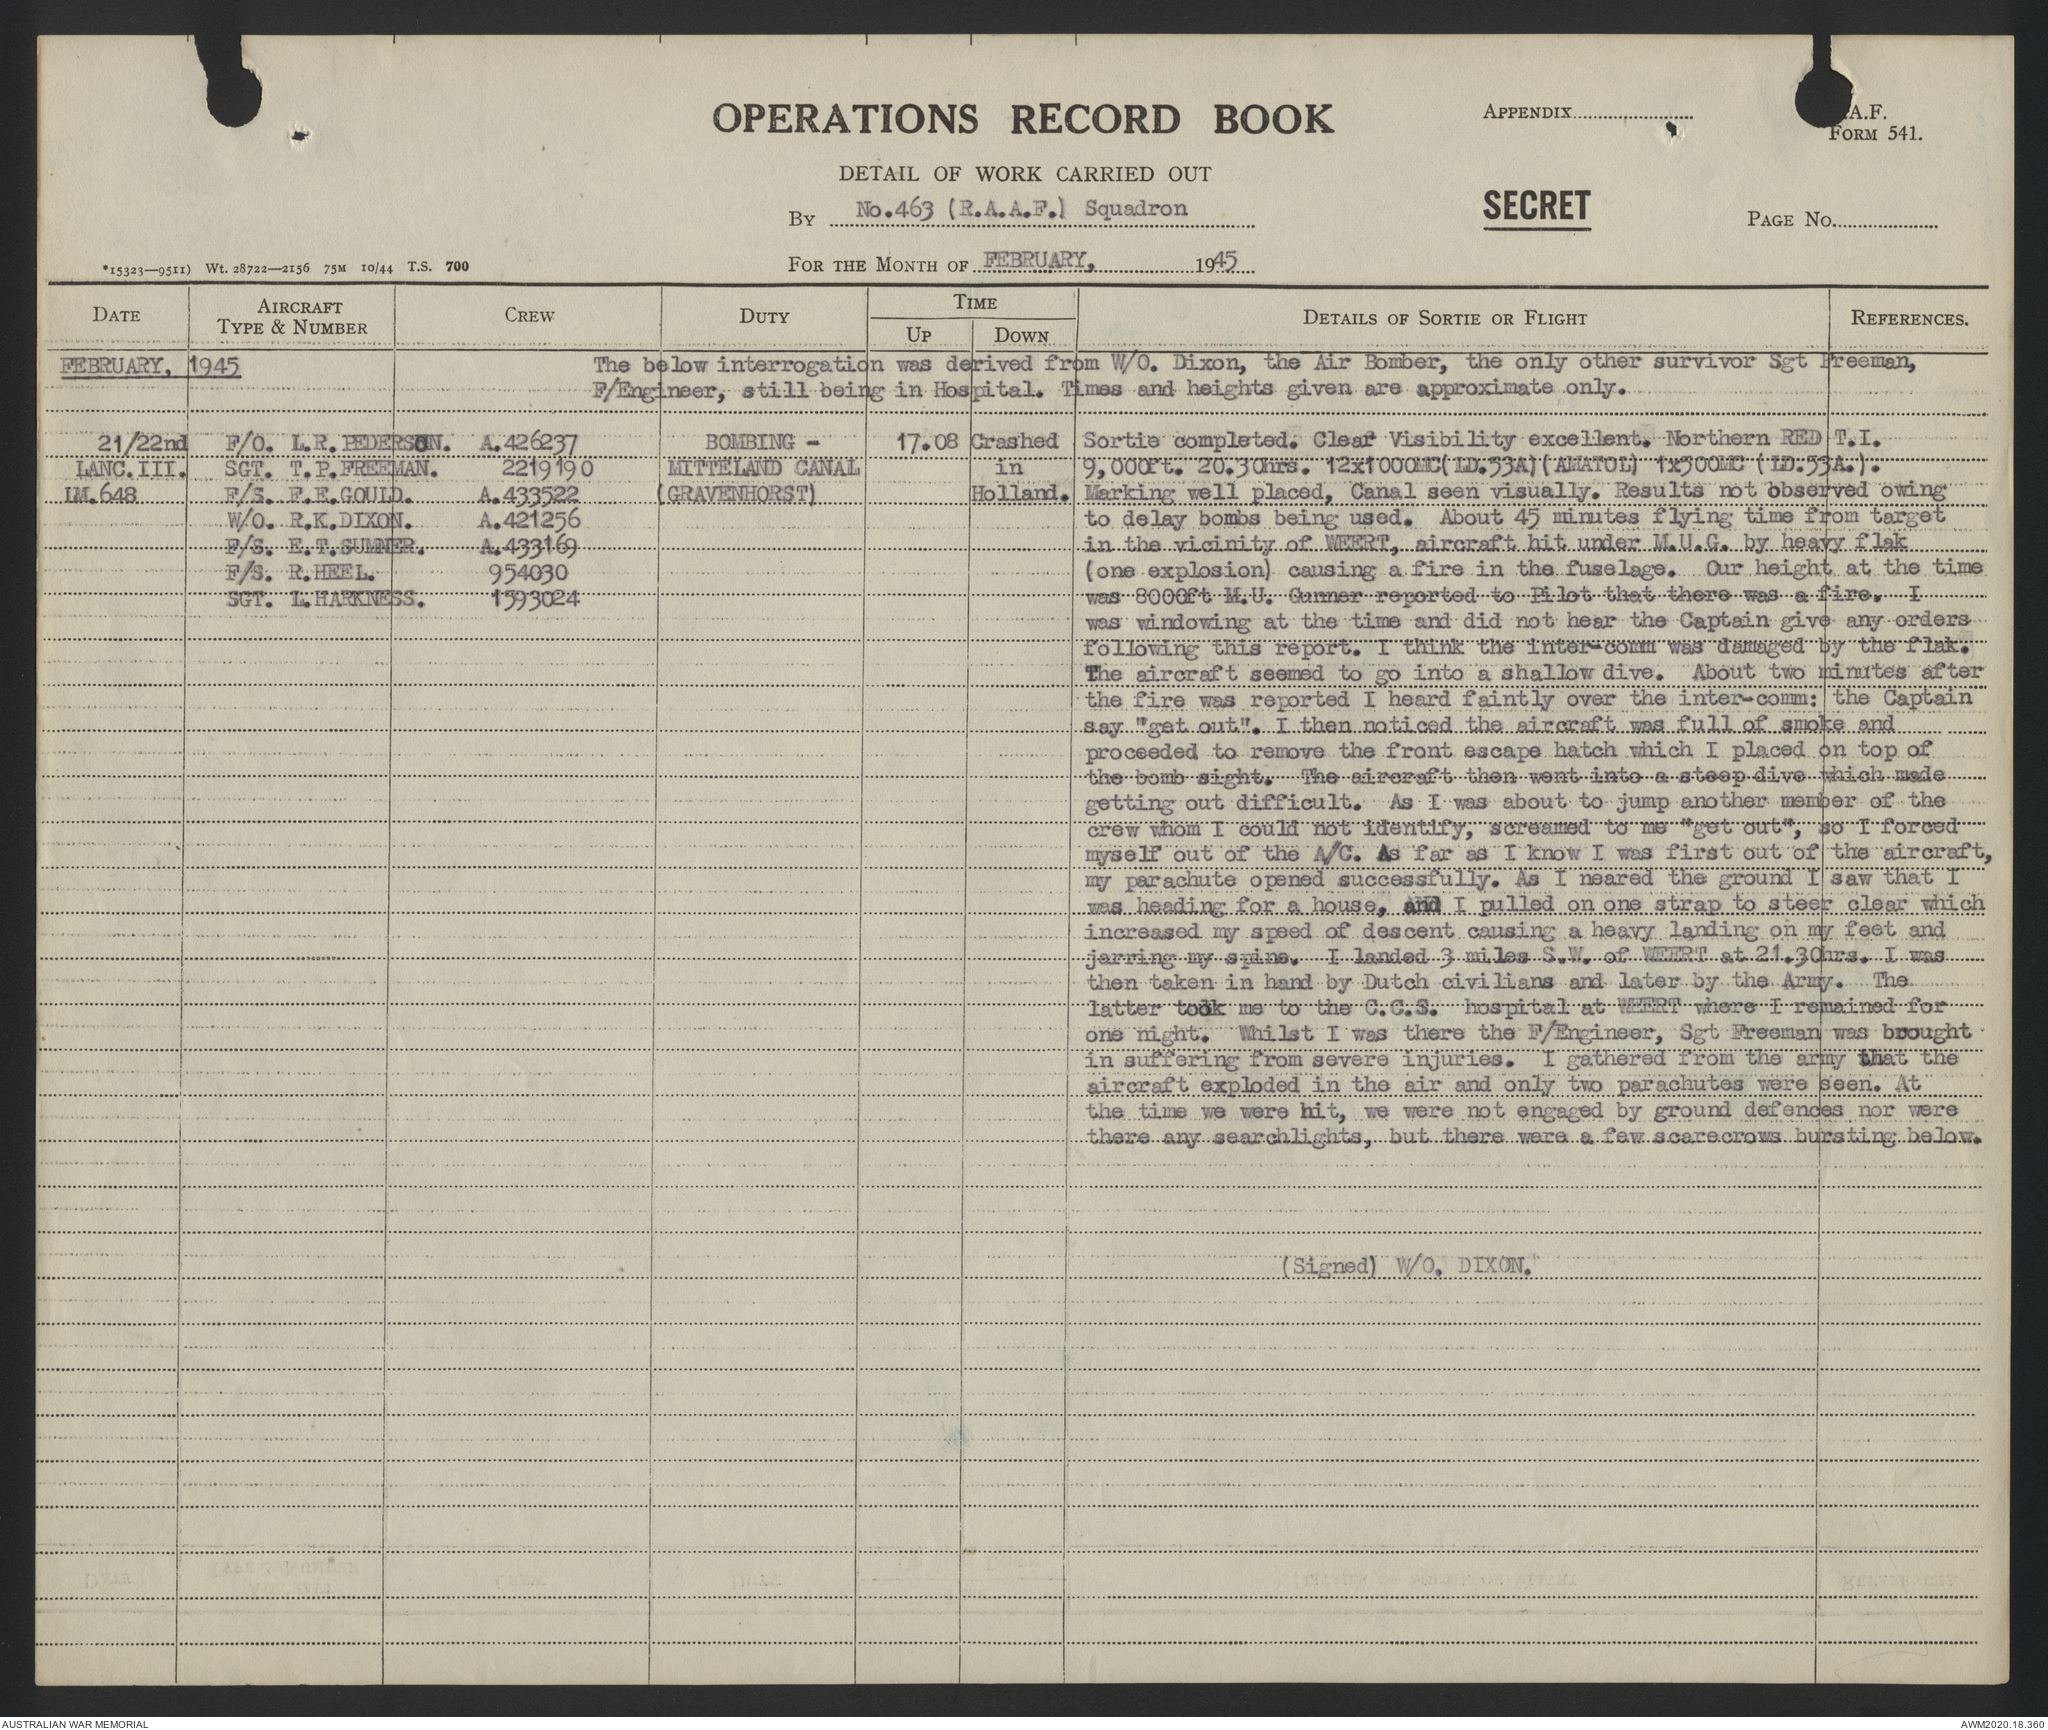 OPERATIONS RECORD BOOK
APPENDIX
.A.F.
FORM 541.
DETAIL OF WORK CARRIED OUT
BY No.463 (R.A.A.F.) Squadron
SECRET
PAGE No.
*15323—9511) Wt. 28722—2156 75M 10/44 T.S. 700
FOR THE MONTH OF FEBRUARY, 1945
DATE
AIRCRAFT TYPE & NUMBER
CREW
DUTY
TIME
UP
DOWN
DETAILS OF SORTIE OR FLIGHT
REFERENCES.
FEBRUARY, 1945 The below interrogation was derived from W/O. Dixon, the Air Bomber, the only other survivor Sgt Freeman,
F/Engineer, still being in Hospital. Times and heights given are approximate only.
21/22nd F/O. L.R.PEDERSON. A.426237 BOMBING - 17.08 Crashed Sortie completed. Clear Visibility excellent. Northern RED T.I.
LANC.III. SGT. T.P.FREEMAN. 2219190 MITTELAND CANAL in 9,000ft. 20.30hrs. 12x1000MC(LD.53A)(AMATOL) 1x500MC (LD.53A.).
LM.648 F/S. F.E.GOULD. A.433522 (GRAVENHORST) Holland. Marking well placed, Canal seen visually. Results not observed owing
W/O. R.K.DIXON. A.421256 to delay bombs being used. About 45 minutes flying time from target
F/S. E.T.SUMNER. A.433169 in the vicinity of WEERT, aircraft hit under M.U.G. by heavy flak
F/S. R.HEEL. 954030 (one explosion) causing a fire in the fuselage. Our height at the time
SGT. L.HARKNESS. 1593024 was 8000ft M.U. Gunner reported to Pilot that there was a fire. I
was windowing at the time and did not hear the Captain give any orders
following this report. I think the inter-comm was damaged by the flak.
The aircraft seemed to go into a shallow dive. About two minutes after
the fire was reported I heard faintly over the inter-comm: the Captain
say "get out". I then noticed the aircraft was full of smoke and
proceeded to remove the front escape hatch which I placed on top of
the bomb sight. The aircraft then went into a steep dive which made
getting out difficult. As I was about to jump another member of the
crew whom I could not identify, screamed to me "get out", so I forced
myself out of the A/C. As far as I know I was first out of the aircraft,
my parachute opened successfully. As I neared the ground I saw that I
was heading for a house, and I pulled on one strap to steer clear which
increased my speed of descent causing a heavy landing on my feet and
jarring my spine. I landed 3 miles S.W. of WEERT at 21.30hrs. I was
then taken in hand by Dutch civilians and later by the Army. The
latter took me to the C.C.S. hospital at WEERT where I remained for
one night. Whilst I was there the F/Engineer, Sgt Freeman was brought
in suffering from severe injuries. I gathered from the army that the
aircraft exploded in the air and only two parachutes were seen. At
the time we were hit, we were not engaged by ground defences nor were
there any searchlights, but there were a few scarecrows bursting below.
(Signed) W/O. DIXON.
AUSTRALIAN WAR MEMORIAL
AWM2020.18.360